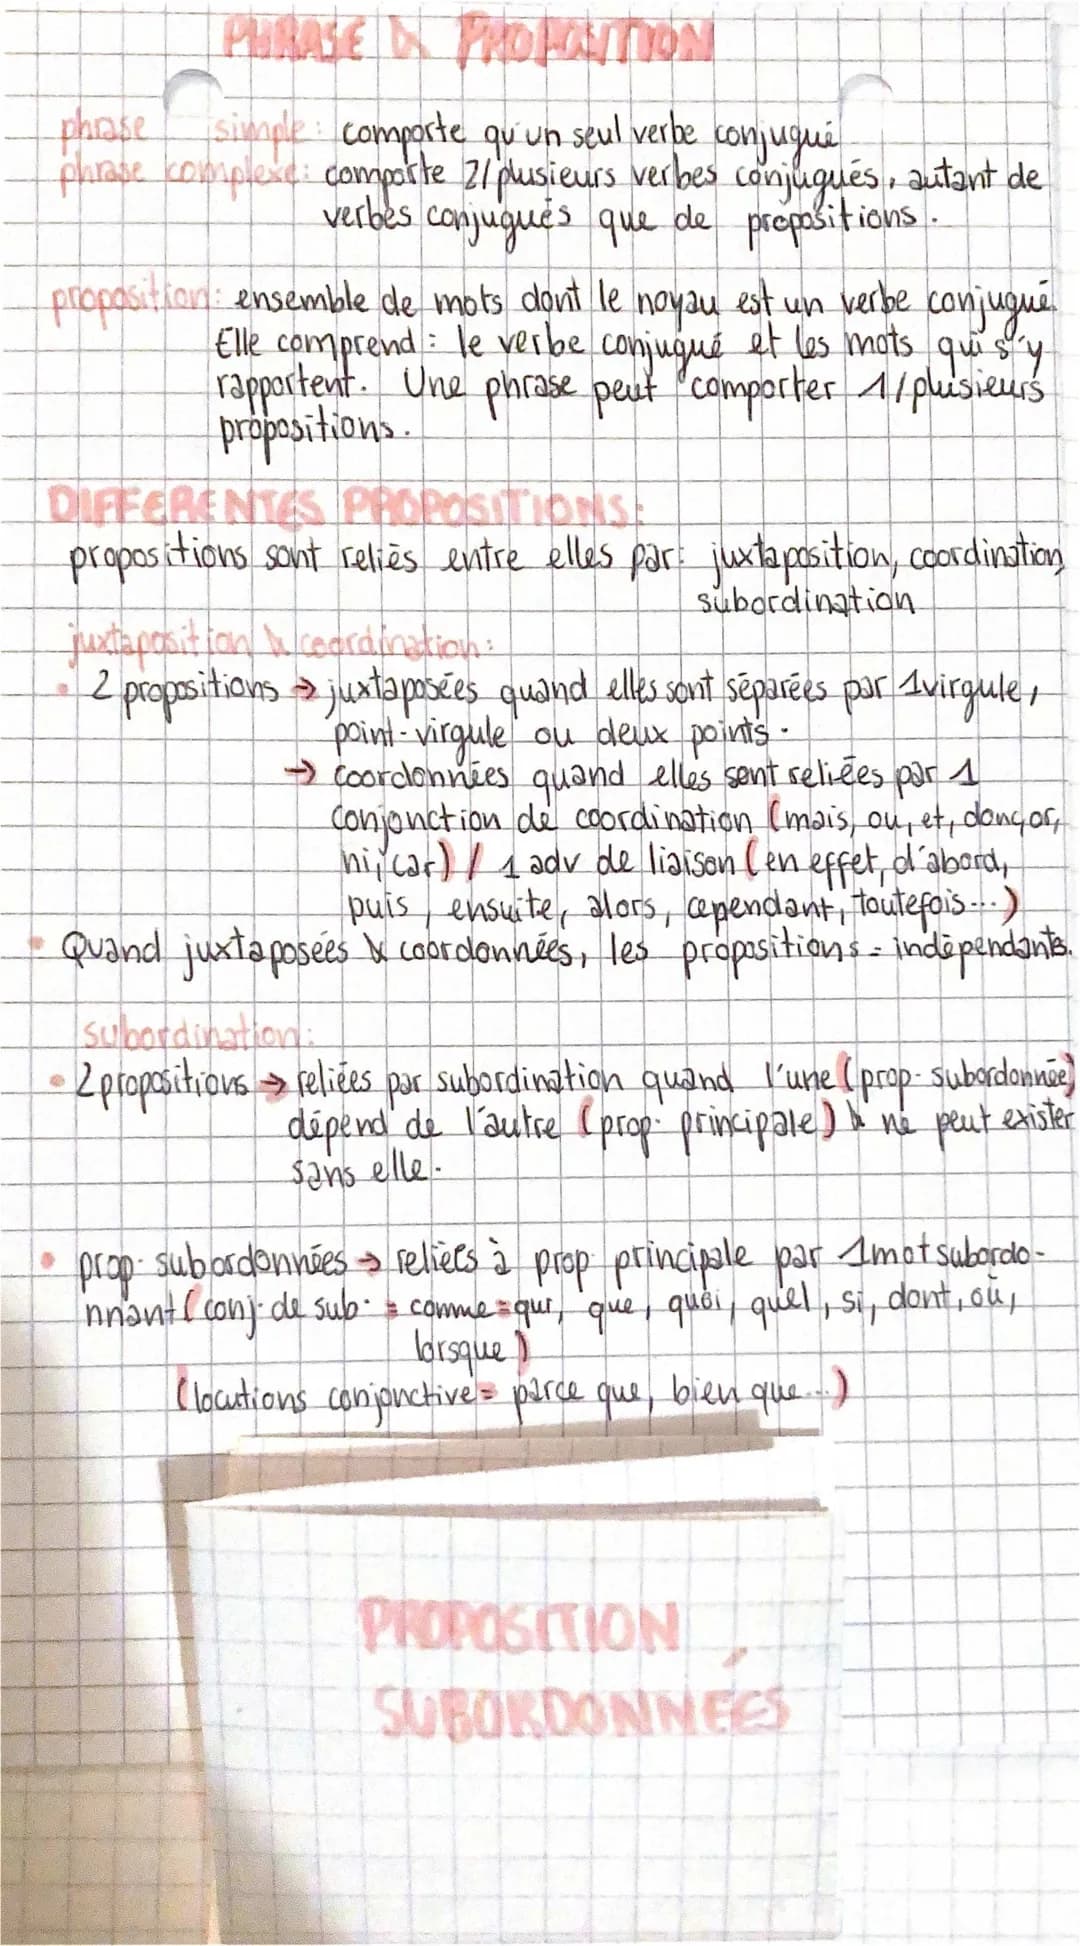 PHRASE & PROPOSITION
phrase simple: comporte qu'un seul verbe conjugué
phrase complexe: comporte 2/plusieurs verbes conjugués, autant de
verbes conjugués que de propositions.
proposition: ensemble de mots dont le noyau est un verbe conjugué.
Elle comprend : le verbe conjugué et les mots qui s'y
rapportent. Une phrase peut comporter 1/plusieurs
propositions.
DIFFERENTES PROPOSITIONS:
propositions sont reliés entre elles par: juxtaposition, coordination,
subordination
juxtaposition & coordination:
• 2 propositions → juxtaposées quand elles sont séparées par 1virgule,
point-virgule ou deux points.
→ coordonnées quand elles sont reliées par 1
conjonction de coordination (mais, ou, et, donc, or,
ni, car) / 1 adv de liaison (en effet, d'abord,
puis, ensuite, alors, cependant, toutefois...)
• Quand juxtaposées & coordonnées, les propositions = indépendants.
subordination:
• 2propositions → reliées par subordination quand l'une (prop. subordonnée)
dépend de l'autre (prop. principale) & ne peut exister
sans elle.
• prop. subordonnées → reliées à prop principale par 1mot subordo-
nnant (conj. de sub. = comme = qui, que, quoi, quel, si, dont, où,
lorsque)
(locutions conjonctive = parce que, bien que...)
PROPOSITION
SUBORDONNÉES